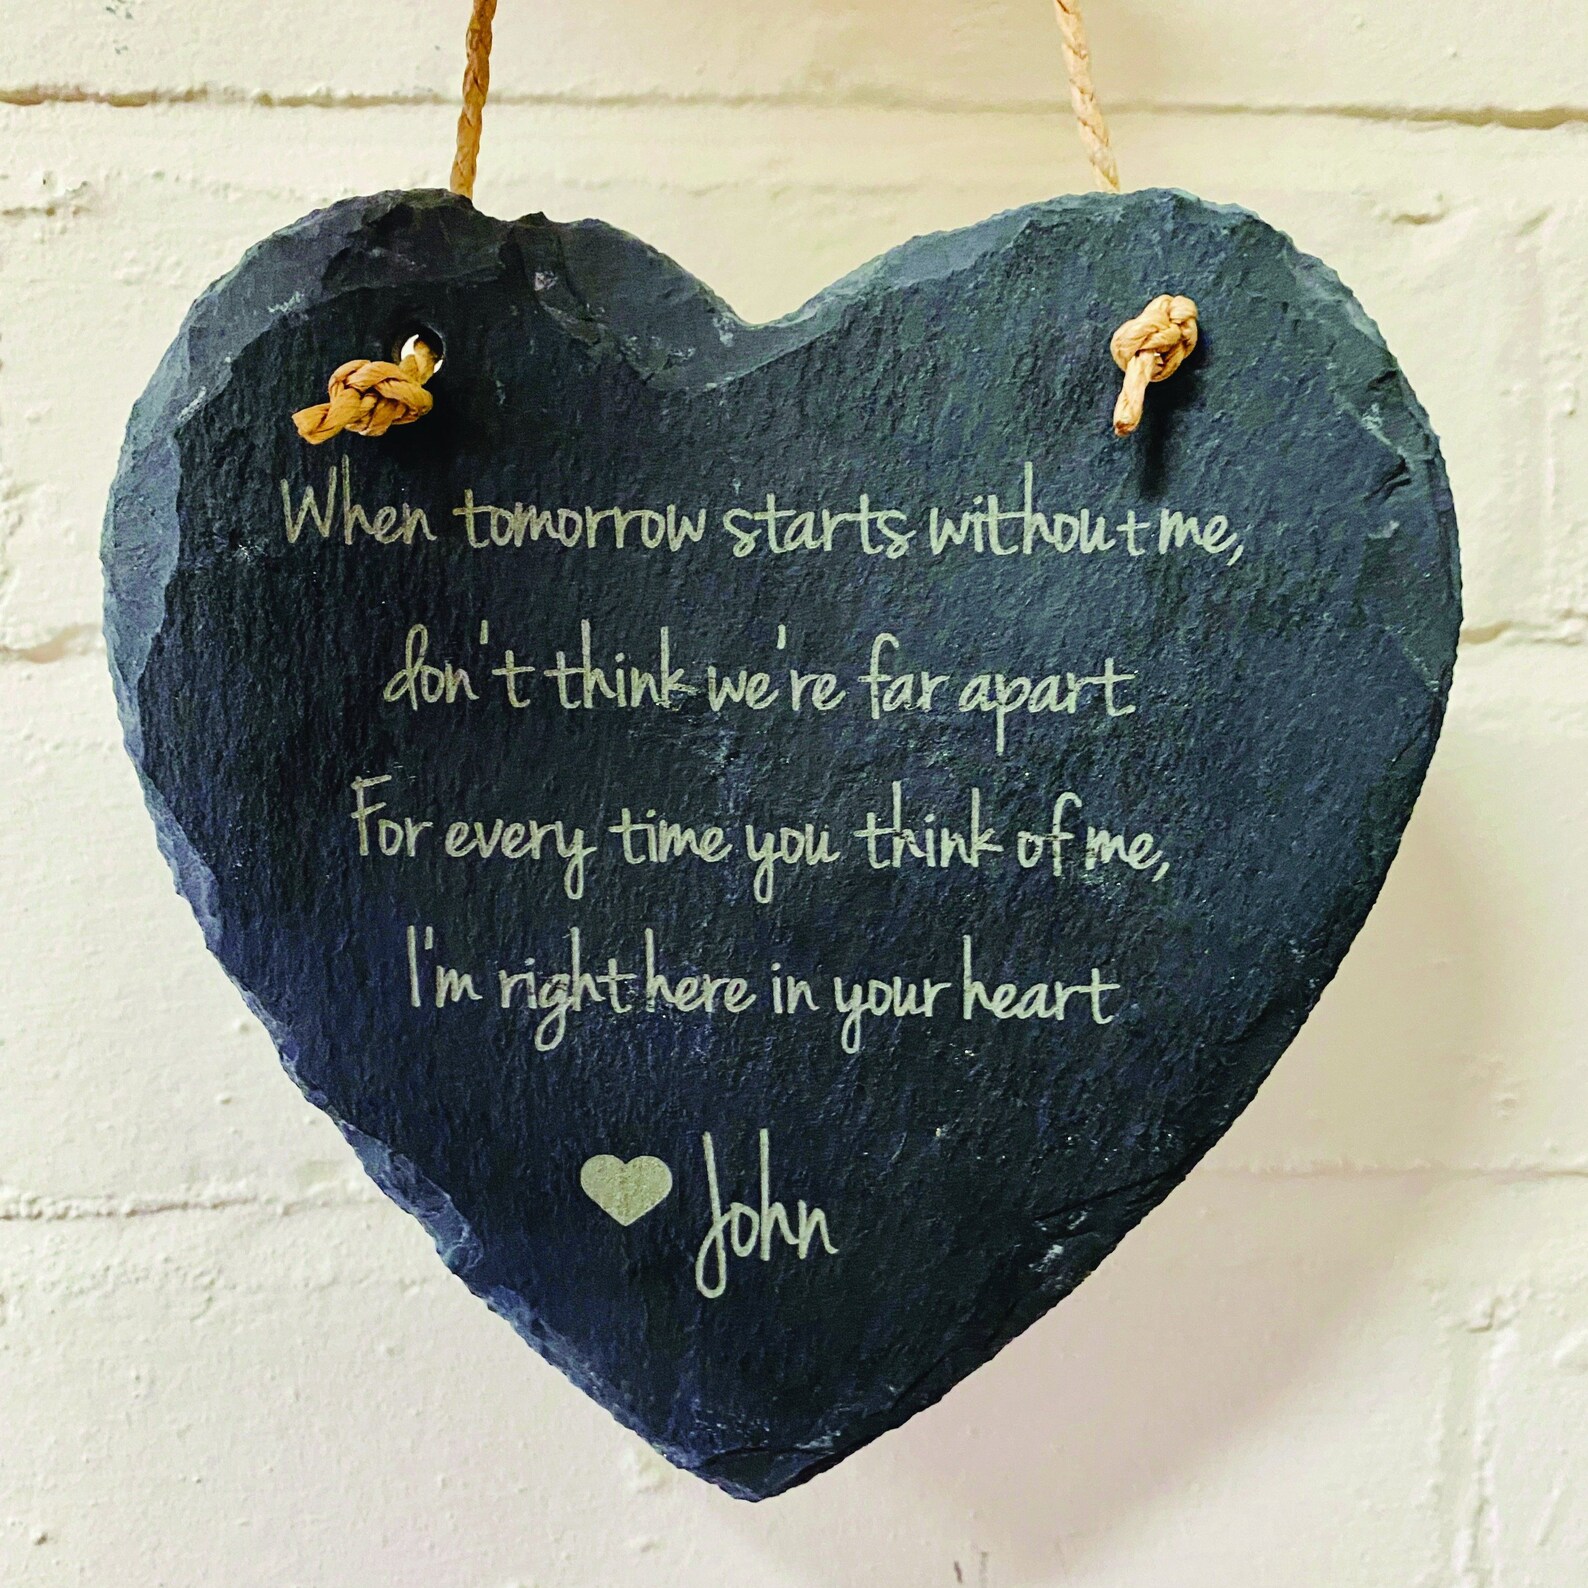 When tomorrow starts without me,
don't think we're far apart
For every time you think of me,
I'm right here in your heart
John